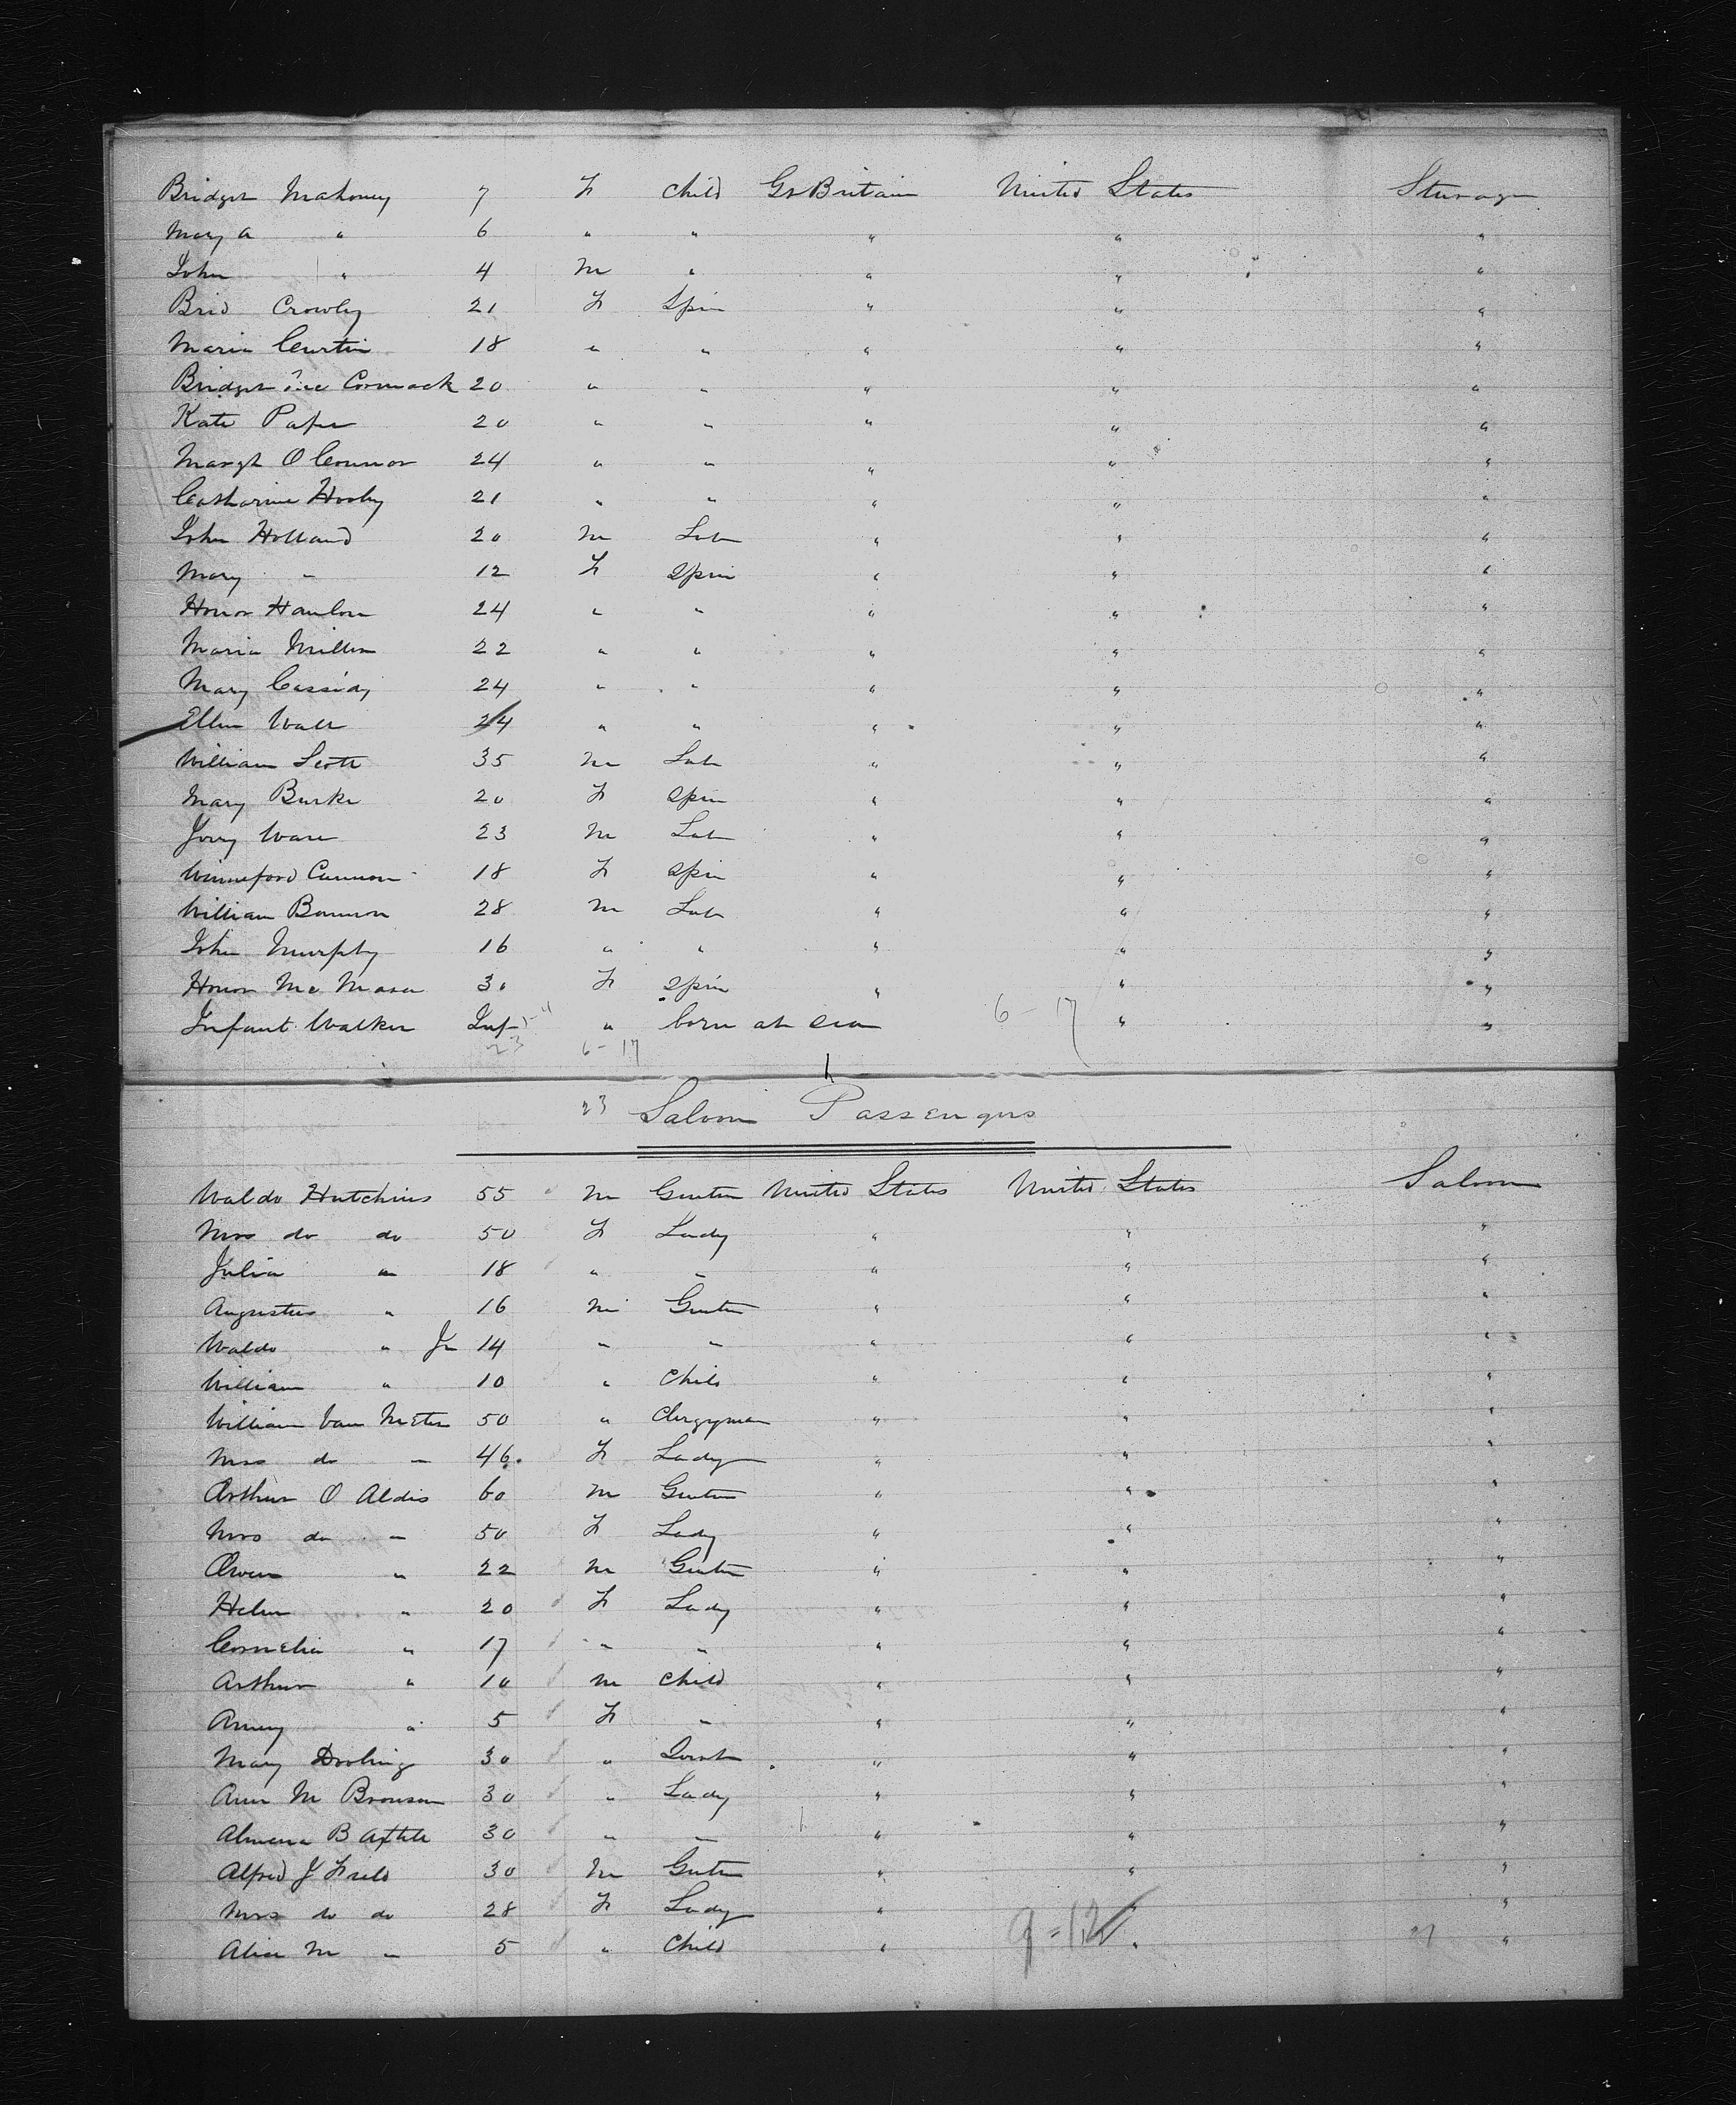 Bridget Mahoney 7 F Child Gt Britain United States Steerage
Mary A " 6 " " " " "
John " 4 M " " " "
Brid Crowley 21 F Spin " " "
Maria Curtin 18 " " " " "
Bridget Mc Cormack 20 " " " " "
Kate 20 " " " " "
Margt O Connor 24 " " " " "
Catharine 21 " " " " "
John Holland 20 M Lab " " "
Mary " 12 F Spin " " "
Honor Hanlon 24 " " " " "
Maria 22 " " " " "
Mary Cassidy 24 " " " " "
Ellen Wall 24 " " " " "
William Scott 35 M Lab " " "
Mary Burke 20 F Spin " " "
Ware 23 M Lab " " "
Winneford Cannon 18 F Spin " " "
William 28 M Lab " " "
John Murphy 16 " " " " "
Honor Mc 30 F Spin " " "
Infant Walker Inf " born at sea 6-17 " "
23 6-17
23 Saloon Passengers
Waldo Hutchins 55 M Gentn United States United States Saloon
Mrs do do 50 F Lady " " "
Julia " 18 " " " " "
Augustus " 16 M Gentn " " "
Waldo " Jr 14 " " " " "
William " 10 " Child " " "
William Van Meter 50 " Clergyman " " "
Mrs do " 46 F Lady " " "
Arthur O Aldis 60 M Gentn " " "
Mrs do " 50 F Lady " " "
Owen " 22 M Gentn " " "
Helen " 20 F Lady " " "
Cornelia " 17 " " " " "
Arthur " 10 M Child " " "
Amey " 5 F " " " "
Mary Dooling 30 " " " "
Ann M Bronson 30 " Lady " " "
Almena B 30 " " " " "
Alfred J Field 30 M Gentn " " "
Mrs do do 28 F Lady " " "
Alice M " 5 " Child " 9=12 " "